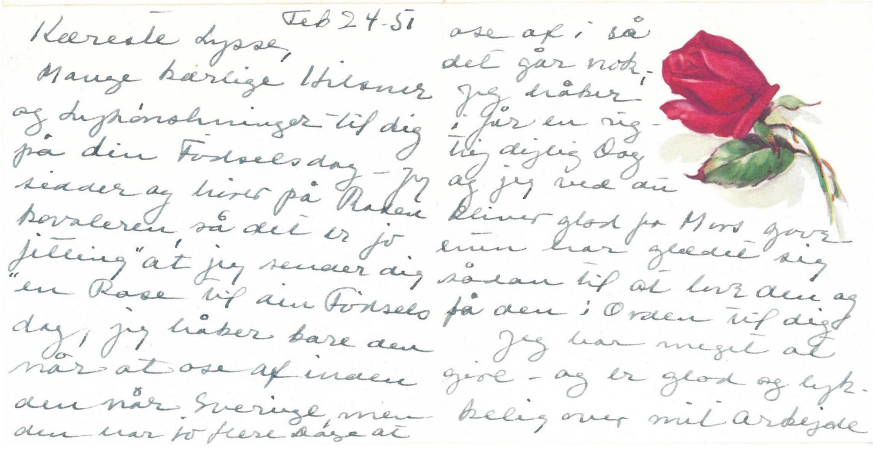 Feb 24-51
Kæreste Lysse,
Mange kærlige Hilsner
og Lykønskninger til dig
på din Fødselsdag - Jeg
sidder og hører på Rosen
kavaleren, så det er jo
"fitting" at jeg sender dig
en Rose til din Fødsels
dag, jeg håber bare den
når at ose af inden
den når Sverige, men
den har jo flere Dage at
ose af i så
det går nok,
Jeg håber
i får en rig-
tig dejlig Dag
og jeg ved du
bliver glad for Mors gave
hun har glædet sig
sådan til at lave den og
få den i Orden til dig
Jeg har meget at
give - og er glad og lyk-
kelig over mit Arbejde